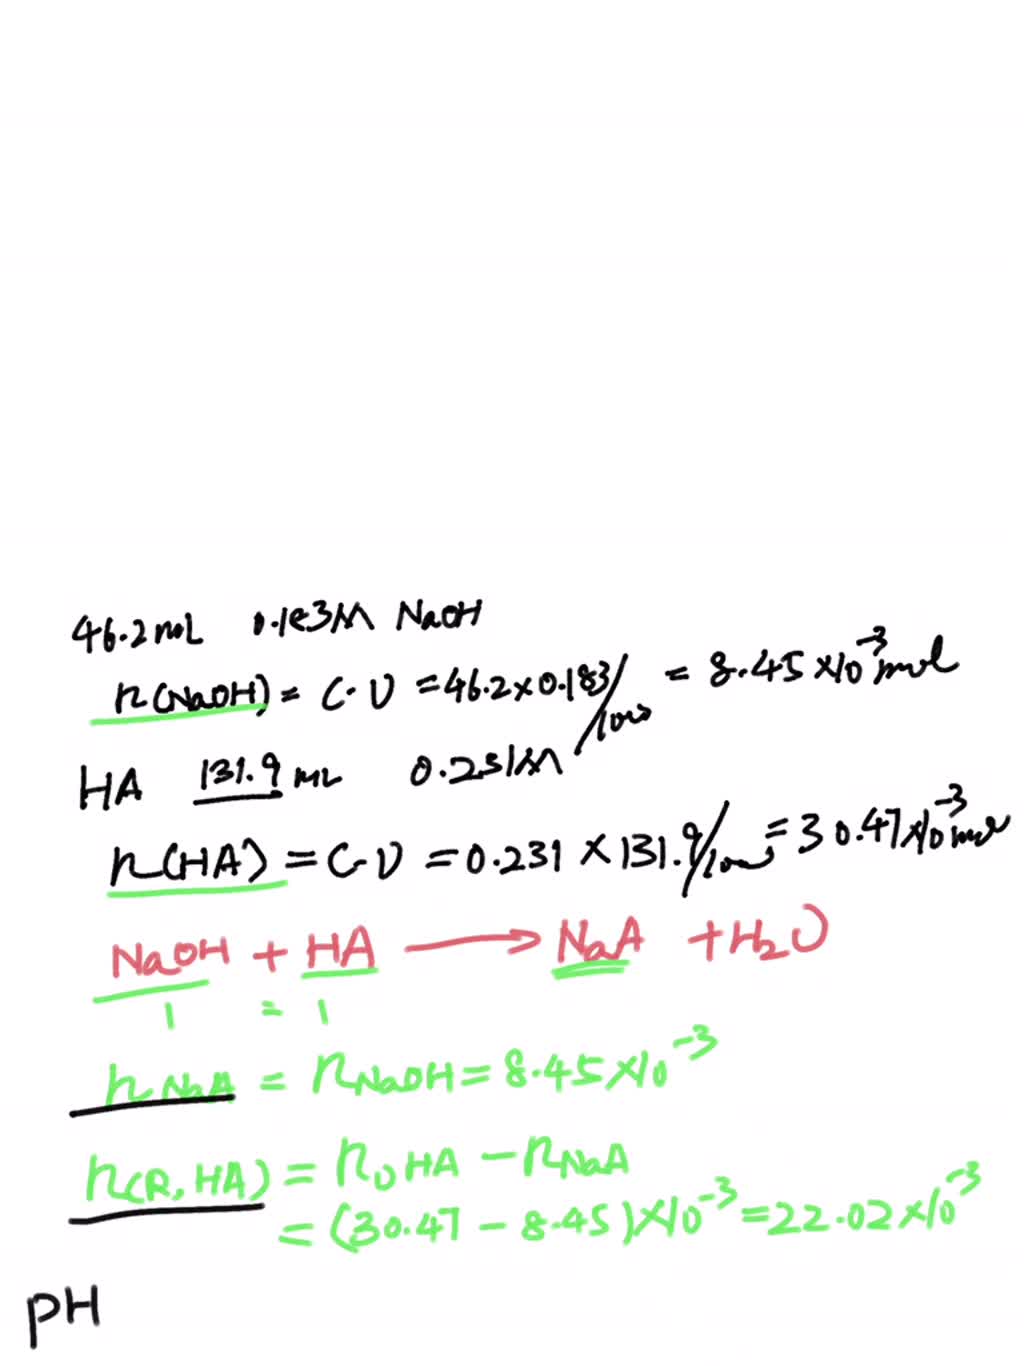 46.2mL 0.183M NaOH
n(NaOH) = C·V = 46.2×0.183/1000 = 8.45×10⁻³mol
HA 131.9 mL 0.231M
n(HA) = C·V = 0.231×131.9/1000 = 30.47×10⁻³mol
NaOH + HA → NaA + H₂O
1 = 1
n NaA = n NaOH = 8.45×10⁻³
n(R,HA) = n₀ HA - n NaA
= (30.47 - 8.45)×10⁻³ = 22.02×10⁻³
PH